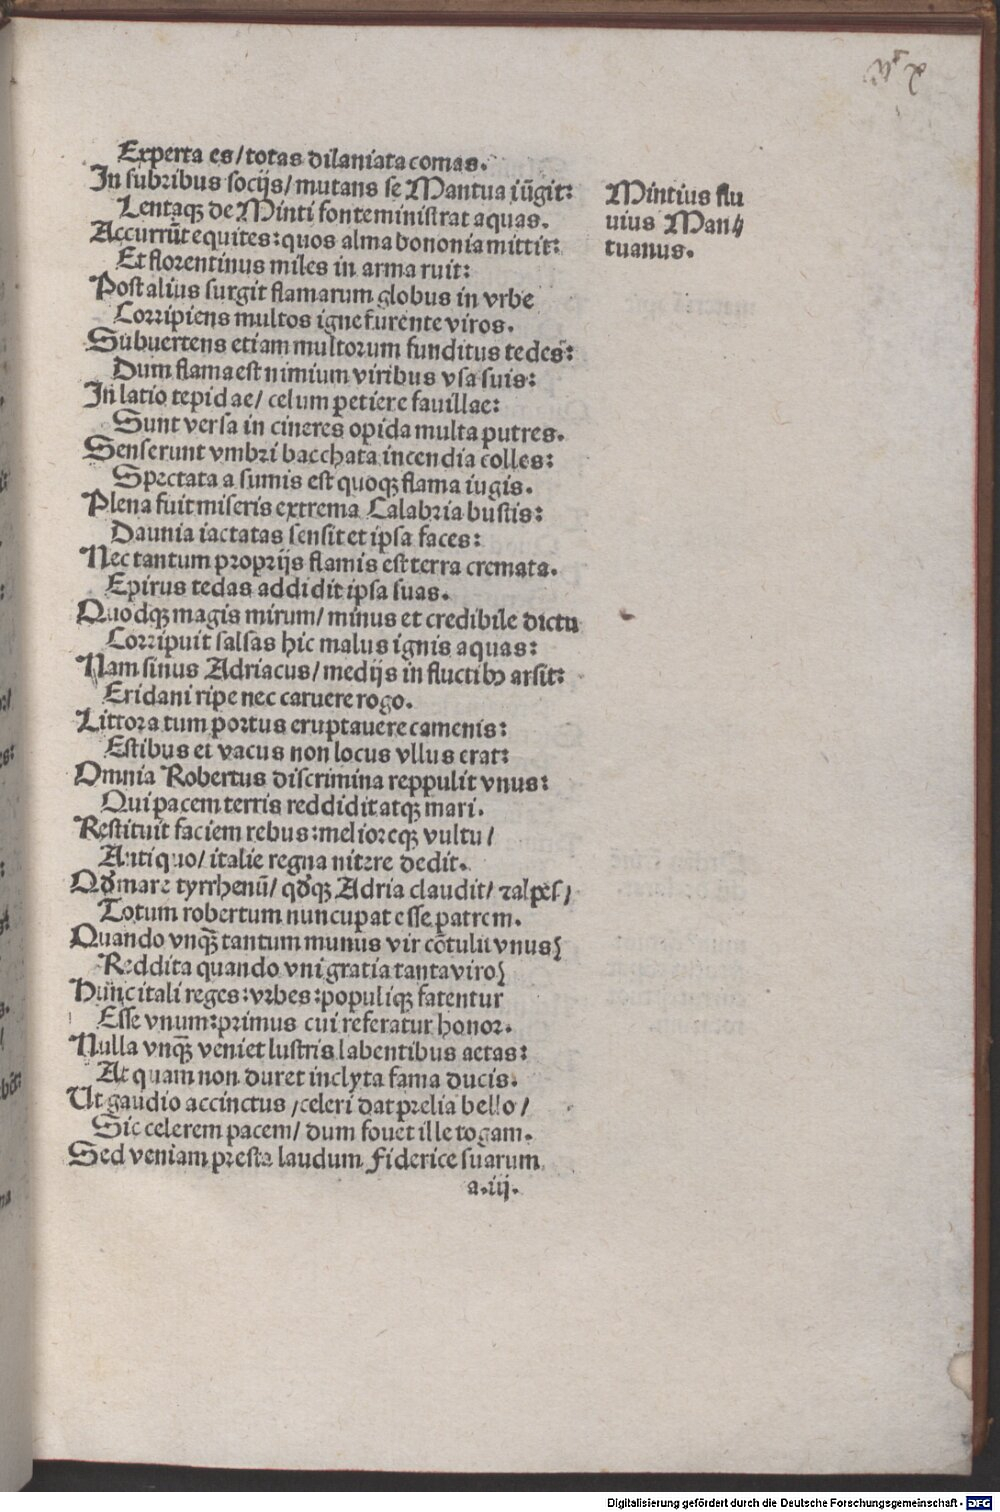 Experta es/totas dilaniata comas.
In subribus socijs/mutans se Mantua iūgit:
Lentaqȝ de Minti fonte ministrat aquas.
Accurrūt equites:quos alma bononia mittit:
Et florentinus miles in arma ruit:
Post alius surgit flamarum globus in vrbe
Corripiens multos igne furente viros.
Subuertens etiam multorum funditus tedes:
Dum flama est nimium viribus vsa suis:
In latio tepidae/ celum petiere fauillae:
Sunt versa in cineres opida multa putres.
Senserunt vmbri bacchata incendia colles:
Spectata a sumis est quoqȝ flama iugis.
Plena fuit miseris extrema Calabria bustis:
Daunia iactatas sensit et ipsa faces:
Nec tantum proprijs flamis est terra cremata.
Epirus tedas addidit ipsa suas.
Quodqȝ magis mirum/ minus et credibile dictu
Corripuit salsas hic malus ignis aquas:
Nam sinus Adriacus/medijs in fluctibꝰ arsit:
Eridani ripe nec caruere rogo.
Littora tum portus eruptauere camenis:
Estibus et vacus non locus vllus erat:
Omnia Robertus discrimina reppulit vnus:
Qui pacem terris reddidit atqȝ mari.
Restituit faciem rebus:melioreqȝ vultu/
Antiquo/italie regna nitere dedit.
Qđ mare tyrrhenū/ qđqȝ Adria claudit/ ⁊alpes/
Totum robertum nuncupat esse patrem.
Quando vnqȝ̄ tantum munus vir cōtulit vnus?
Reddita quando vni gratia tanta viro?
Hunc itali reges:vrbes:populiqȝ fatentur
Esse vnum:primus cui referatur honor.
Nulla vnqȝ̄ veniet lustris labentibus aetas:
At quam non duret inclyta fama ducis.
Ut gaudio accinctus/celeri dat prelia bello/
Sic celerem pacem/ dum fouet ille togam.
Sed veniam presta laudum Fiderice suarum
a.iij.
Mintius flu
uius Man⸗
tuanus.
Digitalisierung gefördert durch die Deutsche Forschungsgemeinschaft - DFG